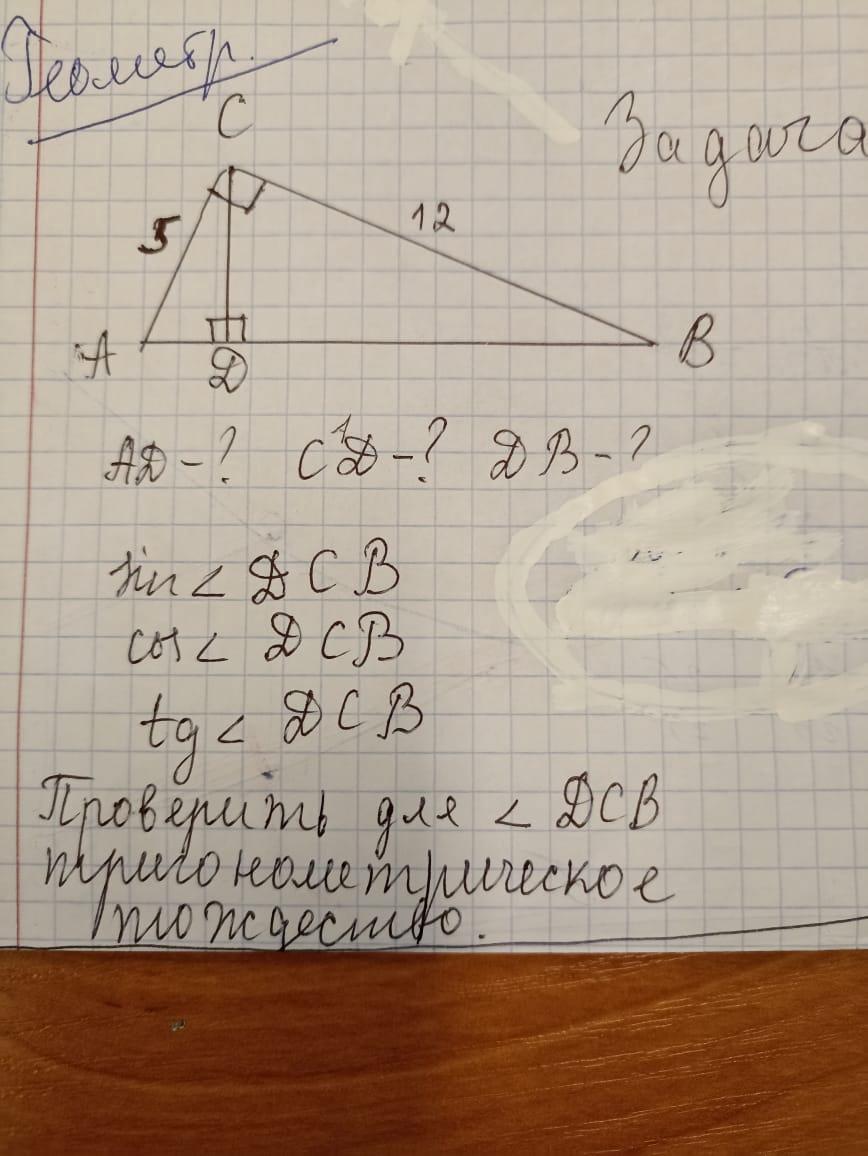 Геометр.
Задача
C
5
12
A
D
B
AD-? CD-? DB-?
sin < DCB
cos < DCB
tg < DCB
Проверить для < DCB
тригонометрическое
тождество.